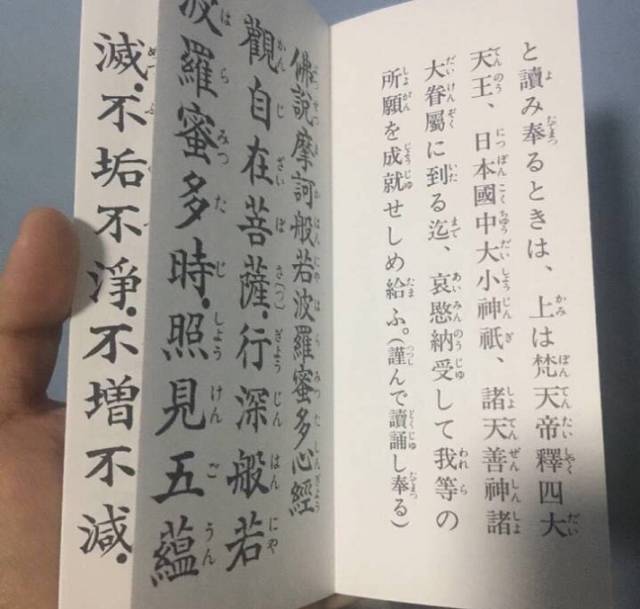 と讀み奉るときは、上は梵天帝釋四大
天王、日本國中大小神祇、諸天善神諸
大眷屬に到る迄、哀愍納受して我等の
所願を成就せしめ給ふ。(謹んで讀誦し奉る)
佛說摩訶般若波羅蜜多心經
觀自在菩薩。行深般若
波羅蜜多時。照見五蘊
滅。不垢不淨。不增不減。